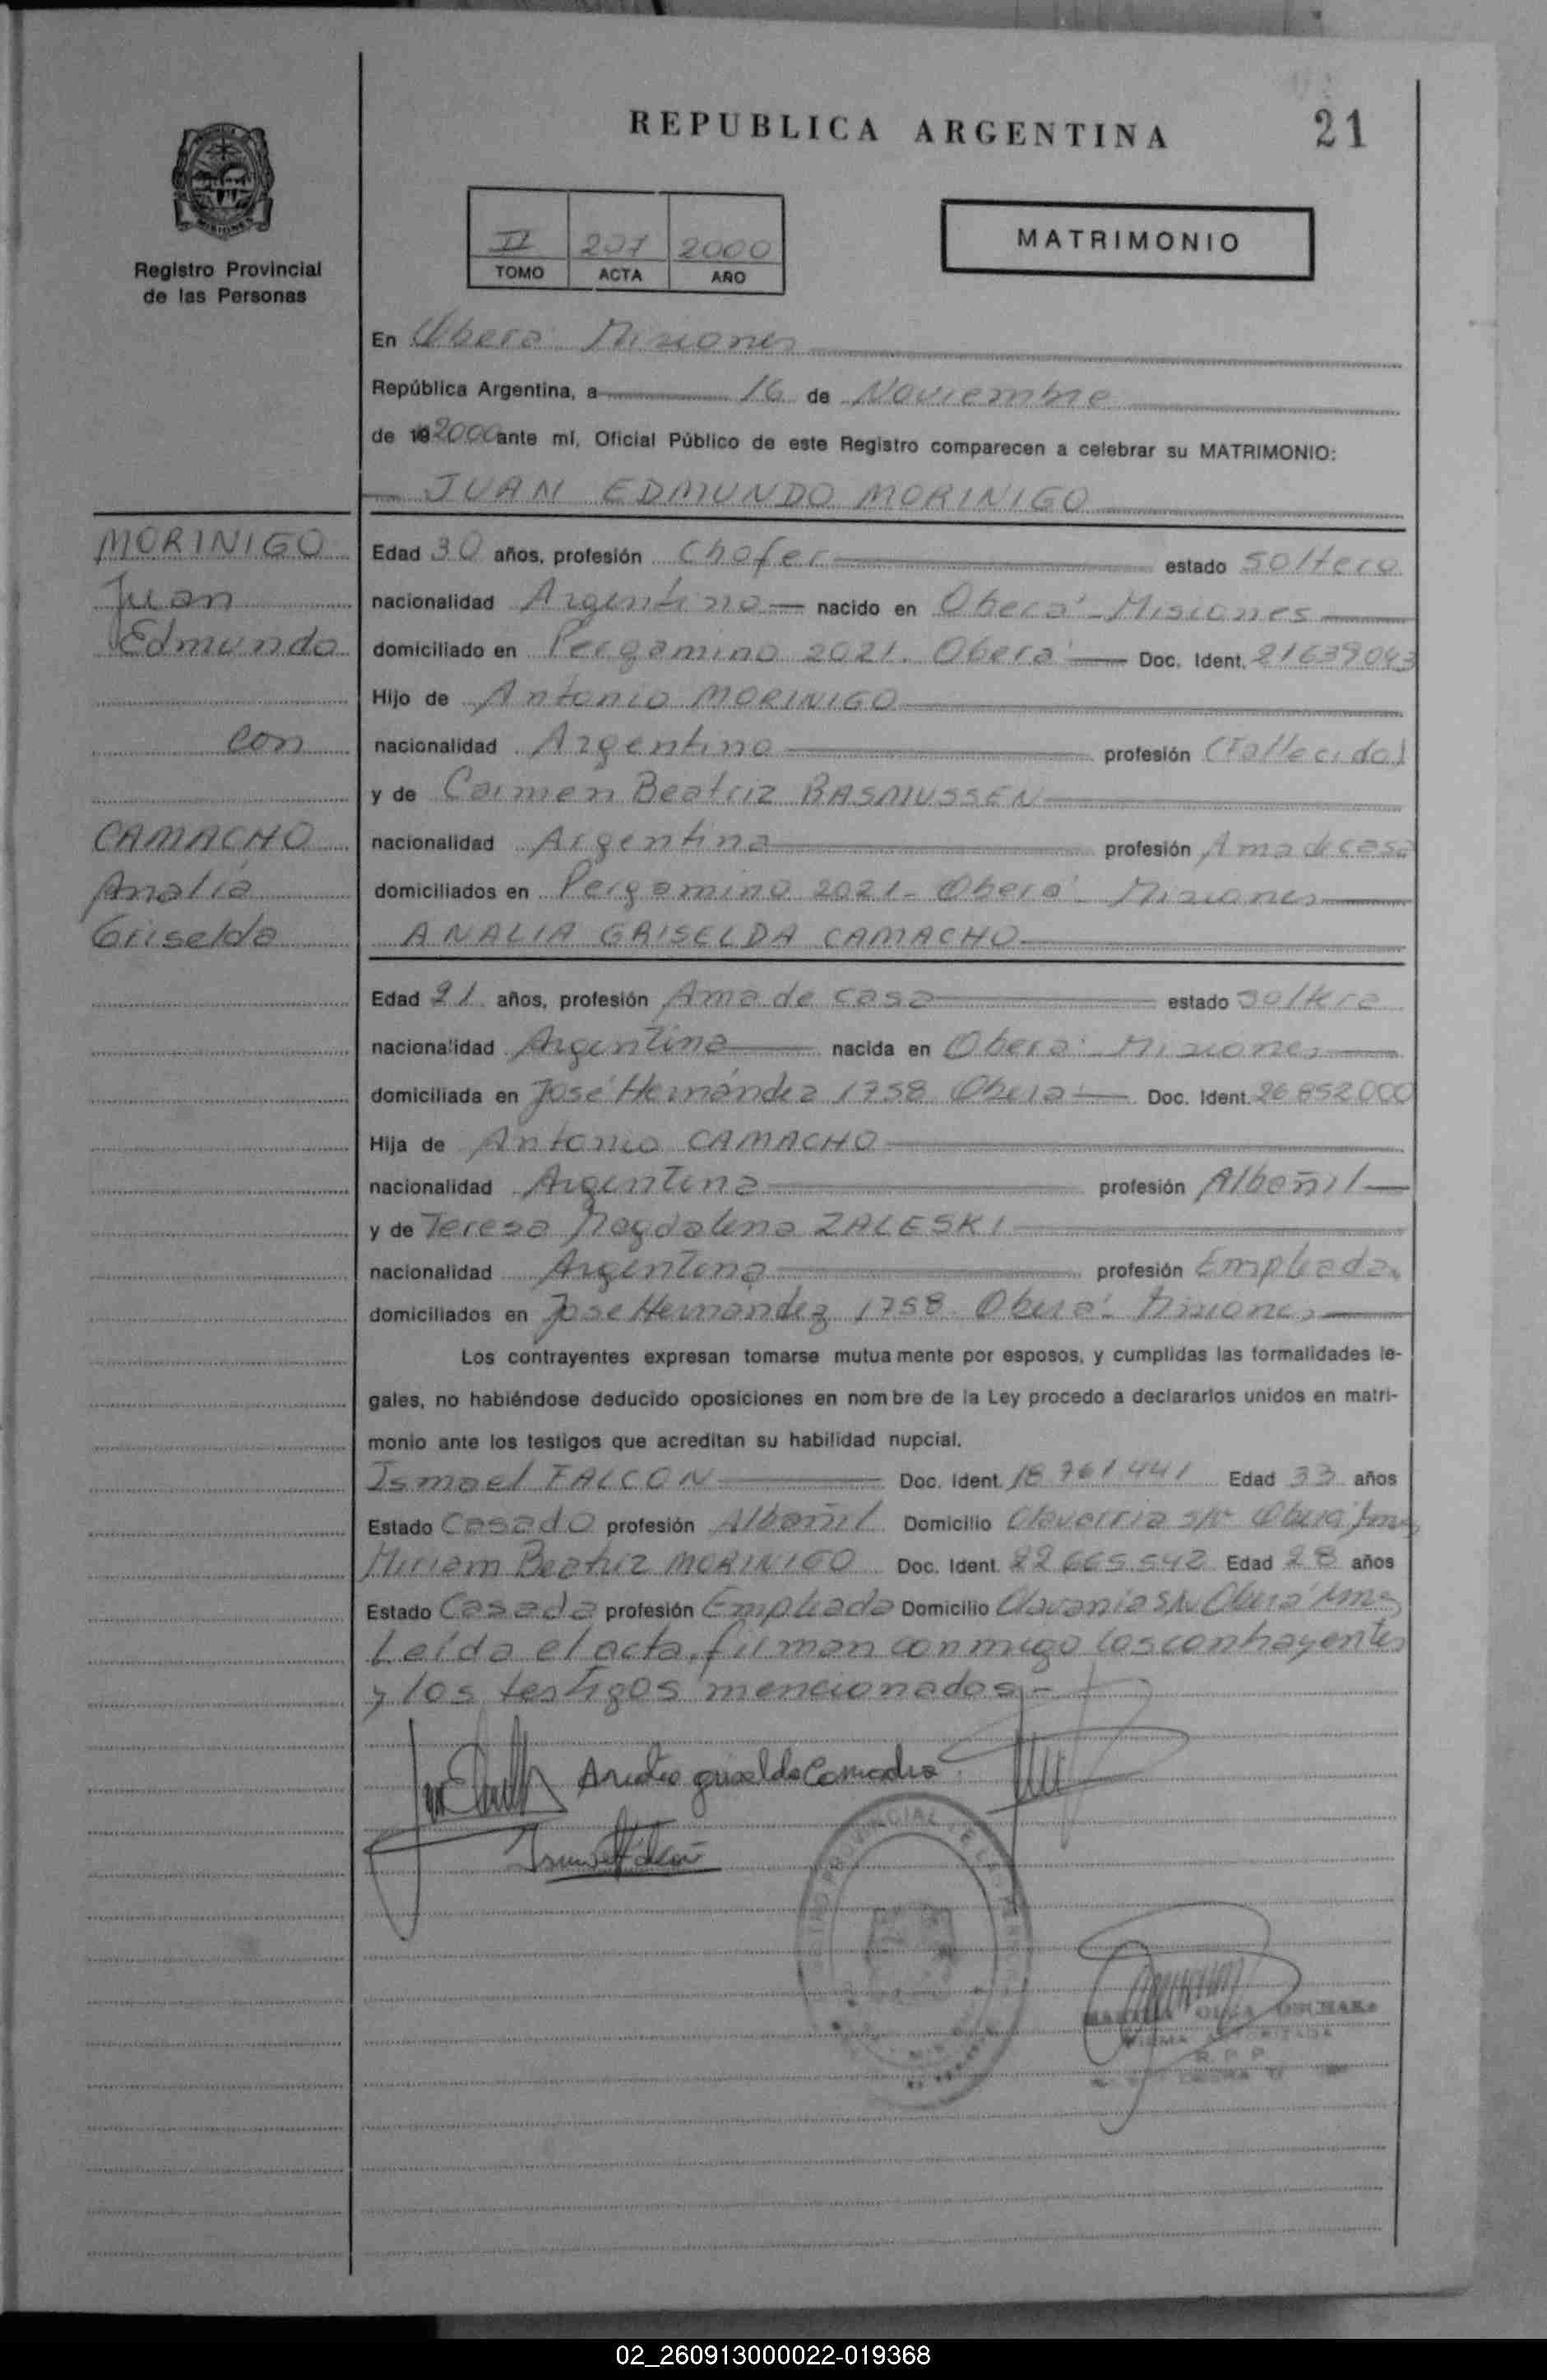 REPUBLICA ARGENTINA
21
Registro Provincial
de las Personas
II 207 2000
TOMO ACTA AÑO
MATRIMONIO
En Oberá Misiones
República Argentina, a 16 de Noviembre
de 19 2000 ante mí, Oficial Público de este Registro comparecen a celebrar su MATRIMONIO:
JUAN EDMUNDO MORINIGO
MORINIGO
Juan
Edmundo
con
CAMACHO
Analia
Griselda
Edad 30 años, profesión Chofer estado soltero
nacionalidad Argentino nacido en Oberá - Misiones
domiciliado en Pergamino 2021. Oberá Doc. Ident. 21639043
Hijo de Antonio MORINIGO
nacionalidad Argentino profesión (Fallecido)
y de Carmen Beatriz RASMUSSEN
nacionalidad Argentina profesión Ama de casa
domiciliados en Pergamino 2021 - Oberá Misiones
ANALIA GRISELDA CAMACHO
Edad 21 años, profesión Ama de casa estado soltera
nacionalidad Argentina nacida en Oberá - Misiones
domiciliada en José Hernández 1758 Oberá Doc. Ident. 26 852000
Hija de Antonio CAMACHO
nacionalidad Argentina profesión Albañil
y de Teresa Magdalena ZALESKI
nacionalidad Argentina profesión Empleada
domiciliados en José Hernández 1758 Oberá - Misiones
Los contrayentes expresan tomarse mutuamente por esposos, y cumplidas las formalidades le-
gales, no habiéndose deducido oposiciones en nombre de la Ley procedo a declararlos unidos en matri-
monio ante los testigos que acreditan su habilidad nupcial.
Ismael FALCON Doc. Ident. 18 761 441 Edad 33 años
Estado Casado profesión Albañil Domicilio s/n Oberá
Miriam Beatriz MORINIGO Doc. Ident. 22 665.542 Edad 28 años
Estado Casada profesión Empleada Domicilio S/N Oberá
Leída el acta, firman conmigo los contrayentes
y los testigos mencionados.-
griselda Camacho
02_260913000022-019368